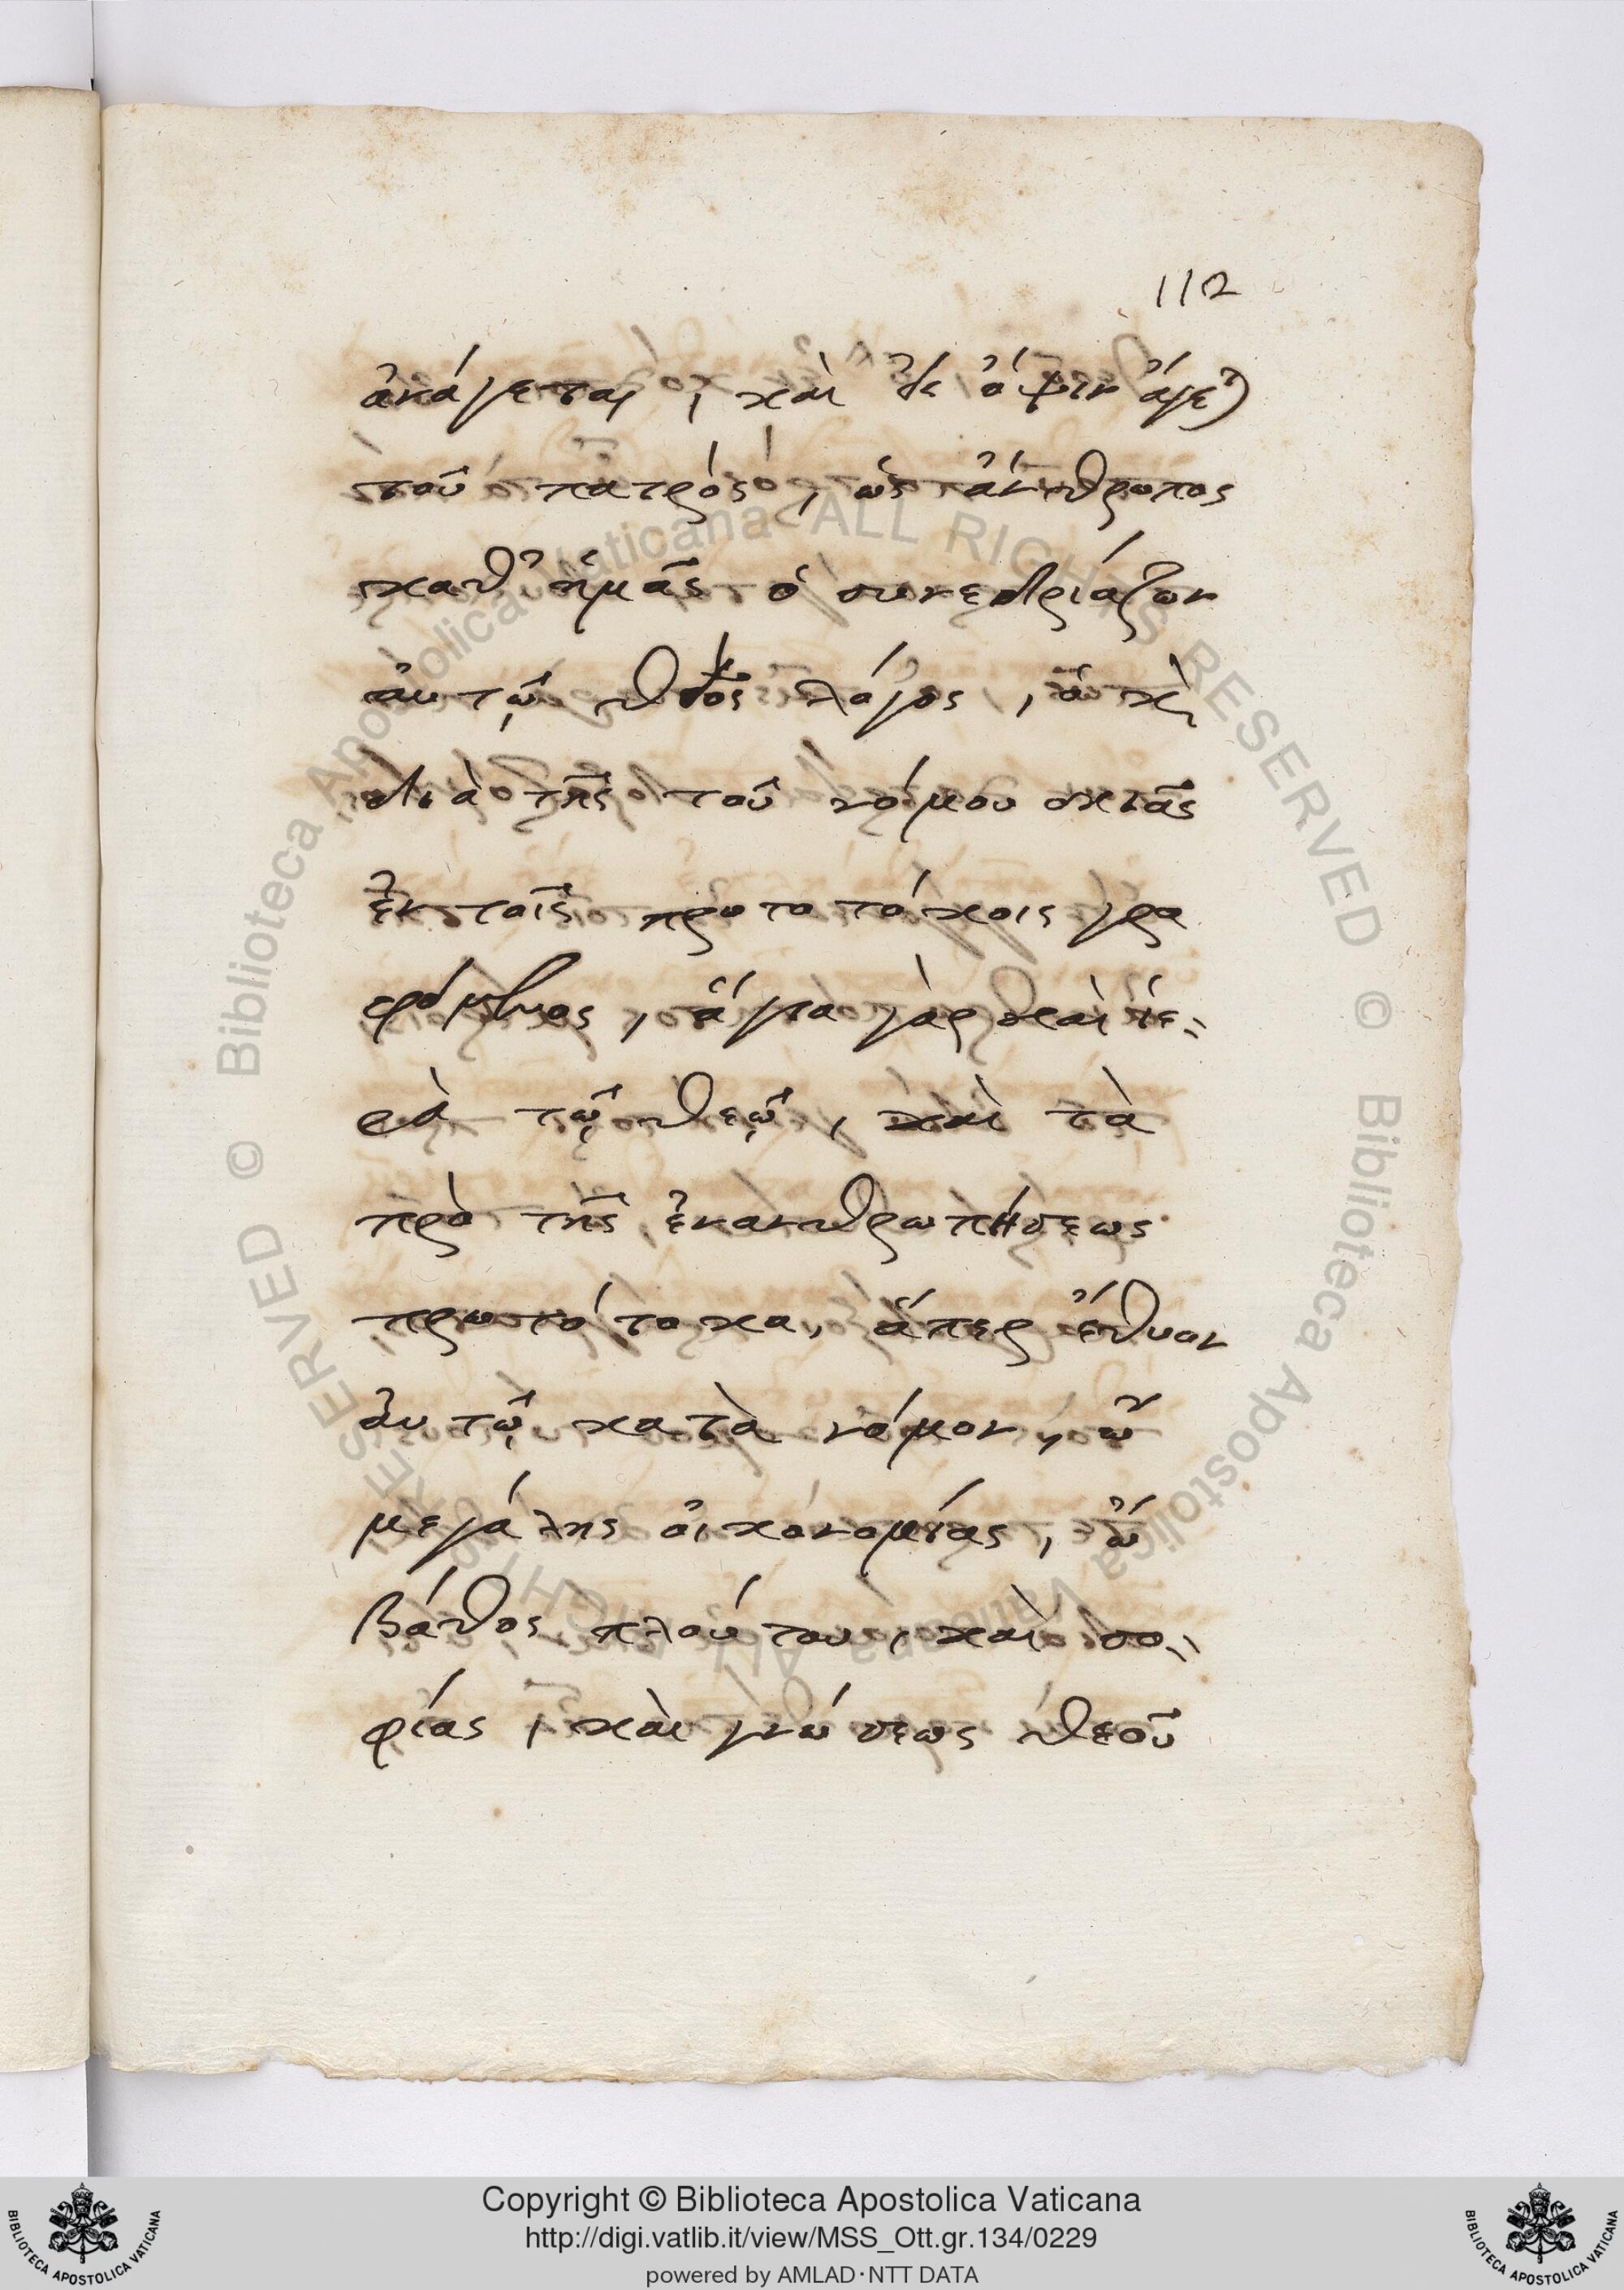 112
ἀνάγεται, καὶ εἰς ὄψιν ἄγεται
τοῦ πατρός, ὡς ἄνθρωπος
καθ' ἡμᾶς ὁ συνεδριάζων
αὐτῷ θεὸς λόγος, ὁ καὶ
διὰ τῆς τοῦ νόμου σκιᾶς
ἐν τοῖς πρωτοτόκοις γρα
φόμενος, ἅγια γὰρ καὶ ἱε-
ρὰ τῷ θεῷ, καὶ τὰ
πρὸ τῆς ἐνανθρωπήσεως
πρωτότοκα, ἅπερ ἔθυον
αὐτῷ κατὰ νόμον, ὢ
μεγάλης οἰκονομίας, ὢ
βάθος πλούτου, καὶ σο-
φίας, καὶ γνώσεως θεοῦ
© Biblioteca Apostolica Vaticana ALL RIGHTS RESERVED
© Biblioteca Apostolica Vaticana ALL RIGHTS RESERVED
BIBLIOTECA APOSTOLICA VATICANA
Copyright © Biblioteca Apostolica Vaticana
http://digi.vatlib.it/view/MSS_Ott.gr.134/0229
powered by AMLAD·NTT DATA
BIBLIOTECA APOSTOLICA VATICANA